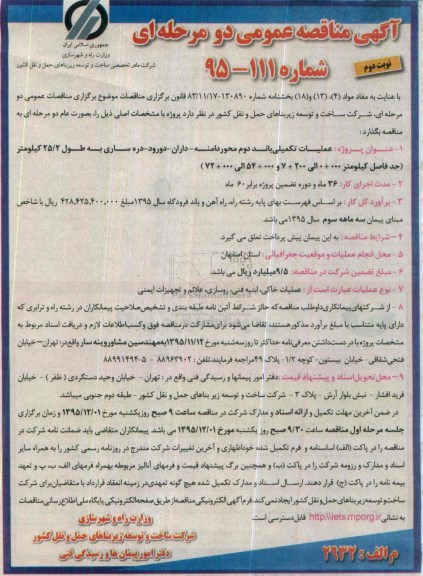 آگهی مناقصه عمومی دو مرحله ای
شماره ۱۱۱-۹۵
نوبت دوم
جمهوری اسلامی ایران
وزارت راه و شهرسازی
شرکت مادر تخصصی ساخت و توسعه زیربناهای حمل و نقل کشور
با عنایت به مفاد مواد (۴)، (۱۳) و(۱۸) بخشنامه شماره ۱۳۰۸۹۰-۸۳/۱۱/۱۷ قانون برگزاری مناقصات موضوع برگزاری مناقصات عمومی دو
مرحله ای، شرکت ساخت و توسعه زیربناهای حمل و نقل کشور در نظر دارد پروژه با مشخصات اصلی ذیل را، بصورت عام دو مرحله ای به
مناقصه بگذارد:
۱- عنوان پروژه: عملیات تکمیلی باند دوم محور دامنه-داران-دورود-دره ساری به طول ۲۵/۲ کیلومتر
(حد فاصل کیلومتر ۰۰۰+۰ الی ۲۰۰+۷ و ۰۰۰+۵۴ الی ۰۰۰+۷۲)
۲- مدت اجرای کار: ۳۶ ماه و دوره تضمین پروژه برابر ۶۰ ماه
۳- برآورد کل کار: بر اساس فهرست بهای پایه رشته راه، راه آهن و باند فرودگاه سال ۱۳۹۵ مبلغ ۴۲۸,۴۲۵,۴۰۰,۰۰۰ ریال با شاخص
مبنای پیمان سه ماهه سوم سال ۱۳۹۵ می باشد.
۴- شرایط مناقصه: به این پیمان پیش پرداخت تعلق می گیرد.
۵- محل انجام عملیات و موقعیت جغرافیائی: استان اصفهان
۶- مبلغ تضمین شرکت در مناقصه: ۹/۵ میلیارد ریال می باشد.
۷- نوع عملیات عبارت است از: عملیات خاکی، ابنیه فنی، روسازی، علائم و تجهیزات ایمنی
۸- از شرکتهای پیمانکاری داوطلب مناقصه که حائز شرائط آئین نامه طبقه بندی و تشخیص صلاحیت پیمانکاران در رشته راه و ترابری که
دارای پایه متناسب با مبلغ برآورد مذکور هستند، تقاضا می شود برای مشارکت در مناقصه فوق و کسب اطلاعات لازم و دریافت اسناد مربوط به
مشخصات پروژه با در دست داشتن معرفی نامه حداکثر تا روز سه شنبه مورخ ۱۳۹۵/۱۱/۱۲ به مهندسین مشاور وینه سار واقع در: تهران-خیابان
فتحی شقاقی- خیابان بیستون- کوچه ۱/۲- پلاک ۴۹ مراجعه فرمایند. تلفن: ۸۸۹۶۳۹۰۲ - ۵-۸۸۹۹۱۴۹۴
۹- محل تحویل اسناد و پیشنهاد قیمت: دفتر امور پیمانها و رسیدگی فنی واقع در: تهران - خیابان وحید دستگردی (ظفر) - خیابان
فرید افشار - نبش بلوار آرش - پلاک ۳ - شرکت ساخت و توسعه زیر بناهای حمل و نقل کشور - طبقه دوم جنوبی میباشد.
در ضمن آخرین مهلت تکمیل و ارائه اسناد و مدارک شرکت در مناقصه ساعت ۹ صبح روز یکشنبه مورخ ۱۳۹۵/۱۲/۰۱ و زمان برگزاری
جلسه مرحله اول مناقصه ساعت ۹/۳۰ صبح روز یکشنبه مورخ ۱۳۹۵/۱۲/۰۱ می باشد. پیمانکاران متقاضی باید ضمانت نامه شرکت در
مناقصه را در پاکت (الف) اساسنامه و فرم تکمیل شده خوداظهاری و آخرین تغییرات شرکت مندرج در روزنامه رسمی کشور را به همراه سایر
اسناد و مدارک و رزومه شرکت را در پاکت (ب) و همچنین برگ پیشنهاد قیمت و فرمهای آنالیز مربوطه بهمراه فرمهای الف، ب، پ و تعهد
بیمه نامه را در پاکت (ج) قرار دهند. ارسال اسناد و مدارک تکمیل شده هیچ گونه تعهدی در زمینه انعقاد قرارداد با متقاضیان برای شرکت
ساخت و توسعه زیربناهای حمل و نقل کشور ایجاد نمی کند. فرم آگهی الکترونیکی مناقصه از طریق صفحه الکترونیکی پایگاه ملی اطلاع رسانی مناقصات
به نشانی http://iets.mporg.ir قابل دسترسی است.
وزارت راه و شهرسازی
شرکت ساخت و توسعه زیربناهای حمل و نقل کشور
دفتر امور پیمان ها و رسیدگی فنی
م الف: ۲۹۳۲